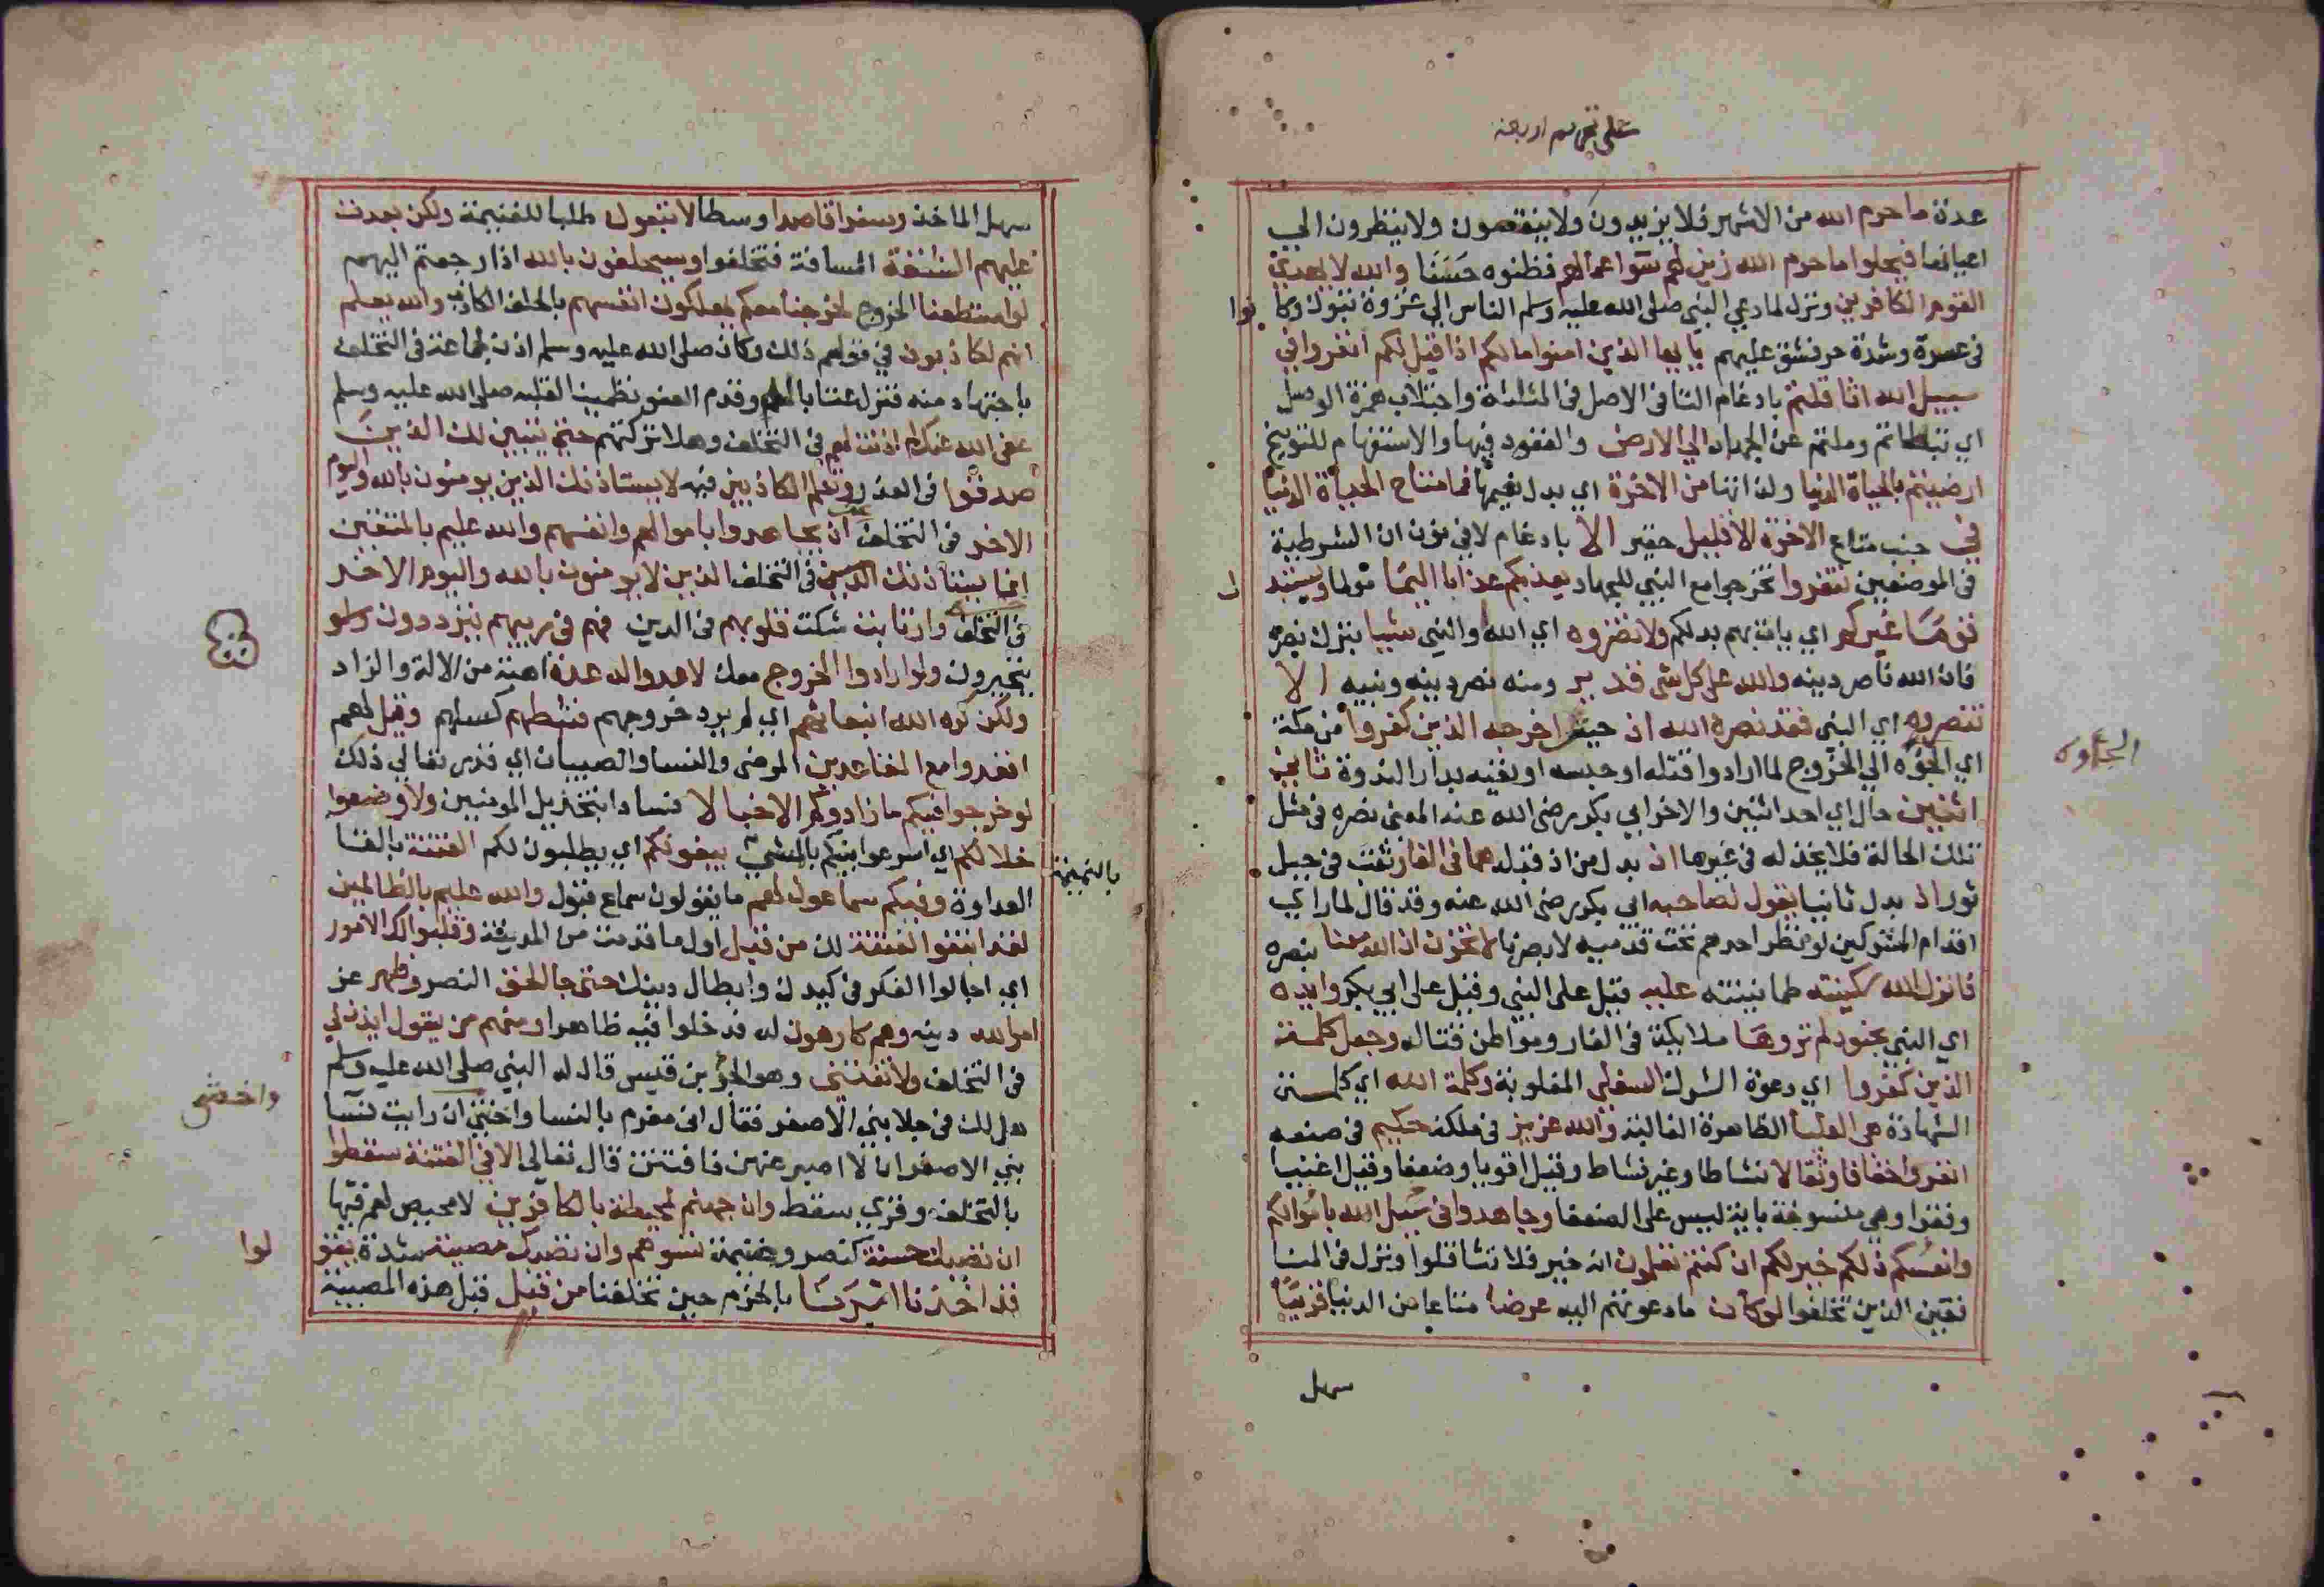 على تحريم اربعة
عدة ما حرم الله من الاشهر فلا يزيدون ولا ينقصون ولا ينظرون الي
اعيانها فيحلوا ما حرم الله زين لهم سوا عمالهم فظنوه حسنا والله لا يهدي
القوم الكافرين ونزل لما دعي النبي صلى الله عليه وسلم الناس الي غزوة تبوك وكا نوا
في عسرة وشدة حر فشق عليهم يا يها الذين امنوا ما لكم اذا قيل لكم انفروا في
سبيل الله اثا قلتم بادغام التا في الاصل في المثلثة واجتلاب همزة الوصل
اي تباطاتم وملتم عن الجهاد الي الارض والقعود فيها والاستفهام للتوبيخ
ارضيتم بالحياة الدنيا ولذاتها من الاخرة اي بدل نعيمها فما متاع الحياة الدنيا
في جنب متاع الاخرة الا قليل حقير الا بادغام لا في نون ان الشرطية
في الموضعين تنفروا تخرجوا مع النبي للجهاد يعذبكم عذابا اليما مولما ويستبد ل
قوما غيركم اي يات بهم بدلكم ولا تضروه اي الله والنبي شيا بترك نصره
فان الله ناصر دينه والله على كل شي قدير ومنه نصر دينه ونبيه الا
تنصروه اي النبي فقد نصره الله اذ حين اخرجه الذين كفروا من مكة
اي الجؤه الي الخروج لما ارادوا قتله او حبسه او نفيه بدار الندوة ثاني
الجاوه
اثنين حال اي احد اثنين والاخر ابي بكر رضى الله عنه المعنى نصره في مثل
تلك الحالة فلا يخذله في غيرها اذ بدل من اذ قبله هما في الغار نقب في جبل
ثور اذ بدل ثاني يقول لصاحبه ابي بكر رضى الله عنه وقد قال لما راي
اقدام المشركين لو نظر احدهم تحت قدميه لابصرنا لا تحزن ان الله معنا بنصره
فانزل الله سكينته طمانينته عليه قيل على النبي وقيل على ابي بكر وايده
اي النبي بجنود لم تروها ملايكة في الغار ومواطن قتاله وجعل كلمة
الذين كفروا اي دعوة الشرك السفلى المغلوبة وكلمة الله اي كلمة
الشهادة هي العليا الظاهرة الغالبة والله عزيز في ملكه حكيم في صنعه
انفروا خفافا وثقالا نشاطا وغير نشاط وقيل اقويا وضعفا وقيل اغنيا
وفقرا وهي منسوخة باية ليس على الضعفا وجاهدوا في سبيل الله باموالكم
وانفسكم ذلكم خير لكم ان كنتم تعلمون انه خير فلا تثاقلوا ونزل في المنا
فقين الذين تخلفوا لو كان ما دعوتهم اليه عرضا متاعا من الدنيا قريبا
سهل
سهل الماخذ وسفرا قاصدا وسطا لاتبعوك طلبا للغنيمة ولكن بعدت
عليهم الشقة المسافة فتخلفوا وسيحلفون بالله اذا رجعتم اليهم
لو استطعنا الخروج لخرجنا معكم يهلكون انفسهم بالحلف الكاذب والله يعلم
انهم لكاذبون في قولهم ذلك وكان صلى الله عليه وسلم اذن لجماعة في التخلف
باجتهاد منه فنزل عتابا لهم وقدم العفو تطمينا لقلبه صلى الله عليه وسلم
عفى الله عنك لم اذنت لهم في التخلف وهلا تركتهم حتى يتبين لك الذين
صدقوا في العذر وتعلم الكاذبين فيه لا يستاذنك الذين يومنون بالله واليوم
الاخر في التخلف عن ان يجاهدوا باموالهم وانفسهم والله عليم بالمتقين
انما يستاذنك في التخلف الذين لا يومنون بالله واليوم الاخر
في التخلف وارتابت شكت قلوبهم في الدين فهم في ريبهم يترددون
يتحيرون ولو ارادوا الخروج معك لاعدوا له عدة اهبة من الالة والزاد
ولكن كره الله انبعاثهم اي لم يرد خروجهم فثبطهم كسلهم وقيل لهم
اقعدوا مع القاعدين المرضى والنسا والصبيان اي قدر تعالي ذلك
لو خرجوا فيكم ما زادوكم الا خبالا فسادا بتخذيل المومنين ولاوضعوا
خلالكم اي اسرعوا بينكم بالمشي يبغونكم اي يطلبون لكم الفتنة بالقا
بالنميمة
العداوة وفيكم سماعون لهم ما يقولون سماع قبول والله عليم بالظالمين
لقد ابتغوا الفتنة لك من قبل اول ما قدمت من المدينة وقلبوا لك الامور
اي اجالوا الفكر في كيدك وابطال دينك حتى جا الحق النصر وظهر عز
امر الله دينه وهم كارهون له فدخلوا فيه ظاهرا ومنهم من يقول ايذن لي
في التخلف ولا تفتني وهو الجد بن قيس قال له النبي صلى الله عليه وسلم
هل لك في جلاد بني الاصفر فقال اني مغرم بالنسا واخشى ان رايت نسا
واخشى
بني الاصفر ان لا اصبر عنهن فافتتن قال تعالي الا في الفتنة سقطوا
بالتخلف وقري سقط وان جهنم لمحيطة بالكافرين لا محيص لهم فيها
ان تصبك حسنة كنصر وغنيمة تسوهم وان تصبك مصيبة شدة يقو لوا
قد اخذنا امرنا بالحزم حين تخلفنا من قبل قبل هذه المصيبة